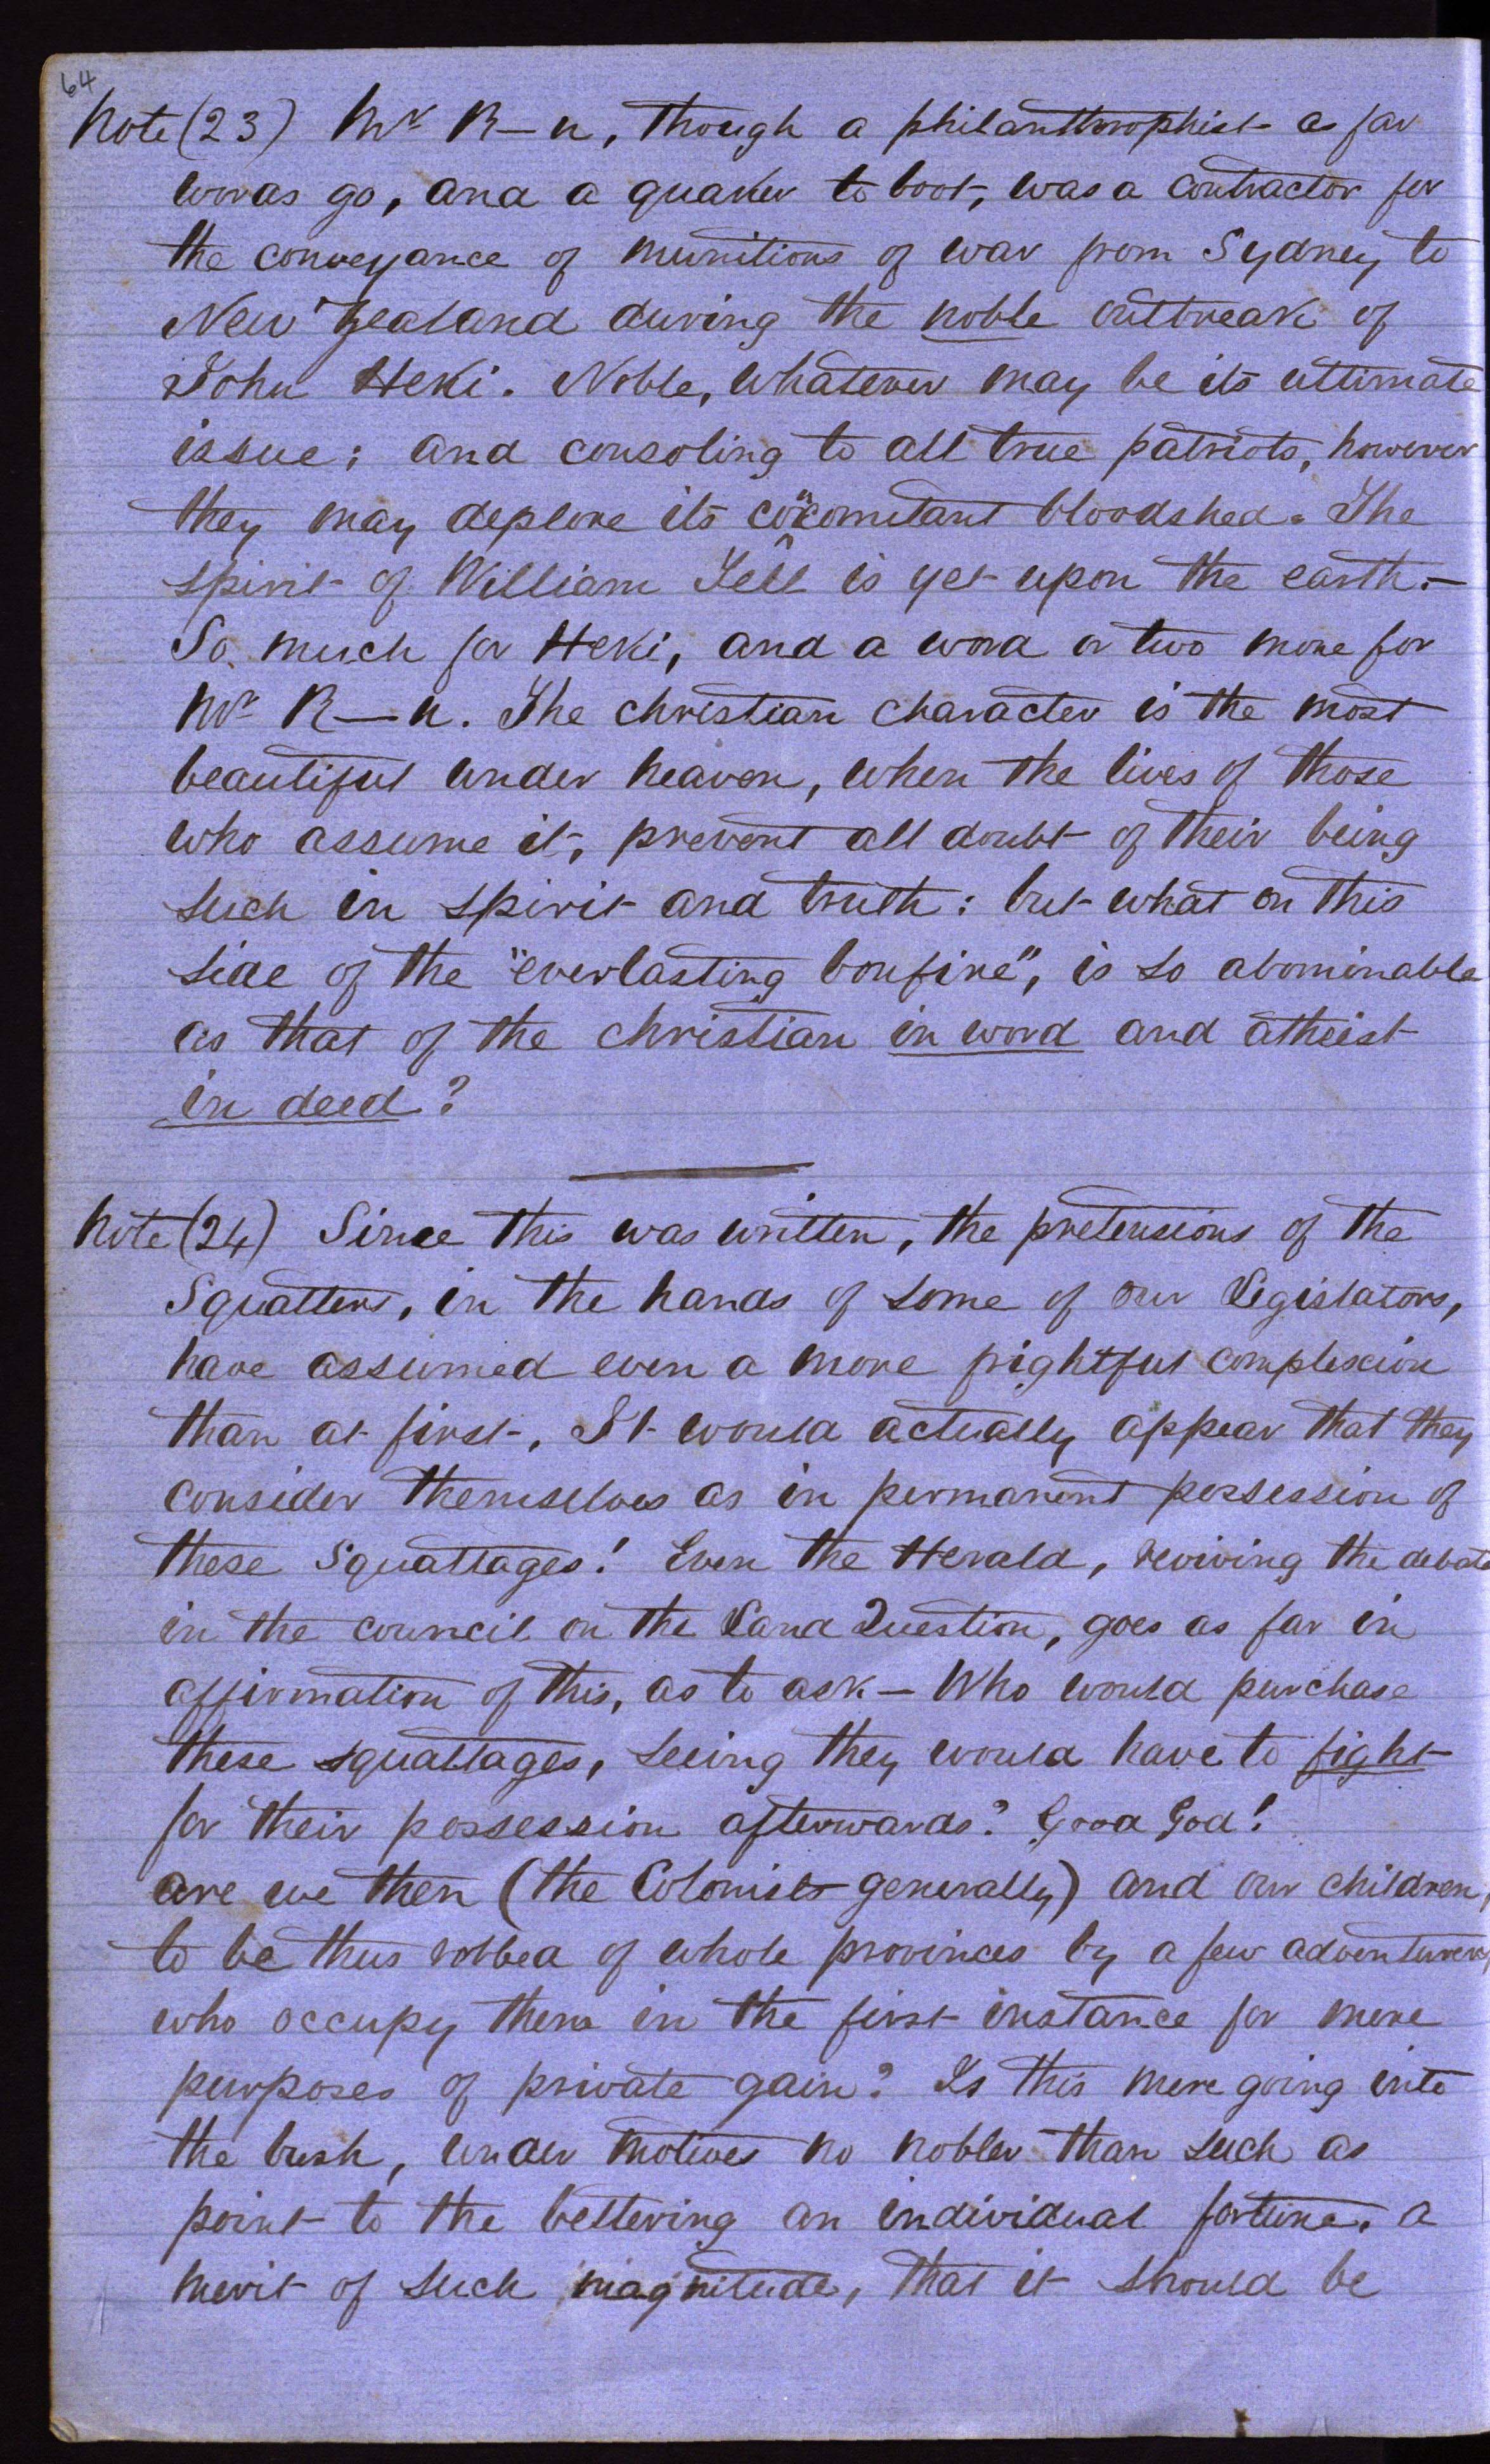 64
Note (23) Mr R—n, though a philanthrophist as far
words go, and a quaker to boot, was a contractor for
the conveyance of munitions of war from Sydney to
New Zealand during the noble outbreak of
John Heki. Noble, whatever may be its ultimate
issue; and consoling to all true patriots, however
they may deplore its concomitant bloodshed. The
spirit of William Tell is yet upon the earth.—
So much for Heki, and a word or two more for
Mr R—n. The christian character is the most
beautiful under heaven, when the lives of those
who assume it, prevent all doubt of their being
such in spirit and truth: but what on this
side of the "everlasting bonfire", is so abominable
as that of the christian in word and atheist
in deed?
Note (24) Since this was written, the pretensions of the
Squatters, in the hands of some of our Legislators,
have assumed even a more frightful complexion
than at first. It would actually appear that they
consider themselves as in permanent possession of
these Squattages! Even the Herald, reviving the debate
in the council on the Land Question, goes as far in
affirmation of this, as to ask — Who would purchase
these squattages, seeing they would have to fight
for their possession afterwards? Good God!
are we then (the Colonists generally) and our children,
to be thus robbed of whole provinces by a few adventurers,
who occupy them in the first instance for mere
purposes of private gain? Is this mere going into
the bush, under motives no nobler than such as
point to the bettering an individual fortune, a
merit of such magnitude, that it should be